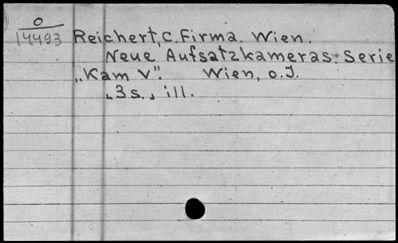 O
14493
Reichert, C. Firma. Wien.
Neue Aufsatzkameras-Serie
„Kam V". Wien, o.J.
„3 s., ill.